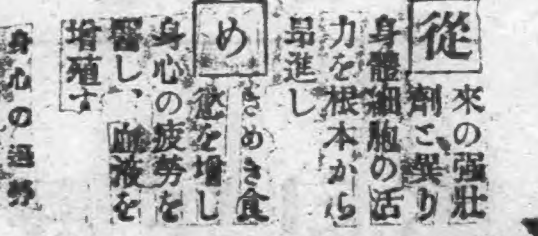 從來の强壯
劑と異り
身體細胞の活
力を根本から
昂進し
めきめき食
慾を增し
身心の疲勞を
醫し、血液を
增殖す
身心の過勞